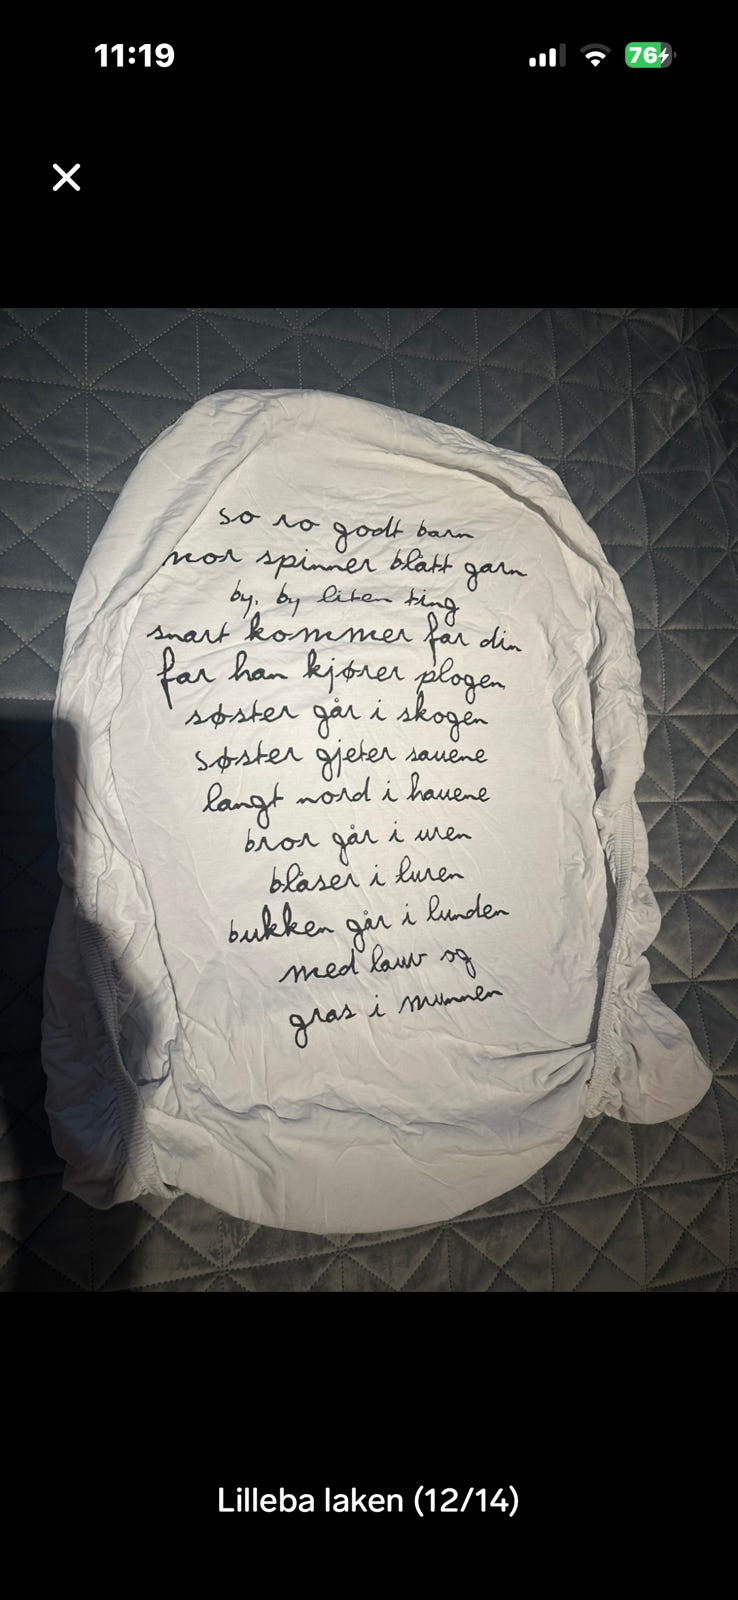 11:19
76
so ro godt barn
mor spinner blått garn
by, by liten ting
snart kommer far din
far han kjører plogen
søster går i skogen
søster gjeter sauene
langt nord i hauene
bror går i uren
blåser i luren
bukken går i lunden
med lauv og
gras i munnen
Lilleba laken (12/14)